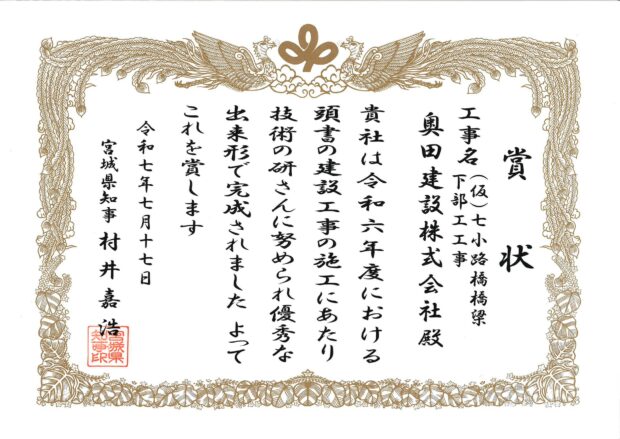 賞状
工事名 (仮)七小路橋橋梁
下部工工事
奥田建設株式会社殿
貴社は令和六年度における
頭書の建設工事の施工にあたり
技術の研さんに努められ優秀な
出来形で完成されました よって
これを賞します
令和七年七月十七日
宮城県知事 村井嘉浩
宮城県
知事印